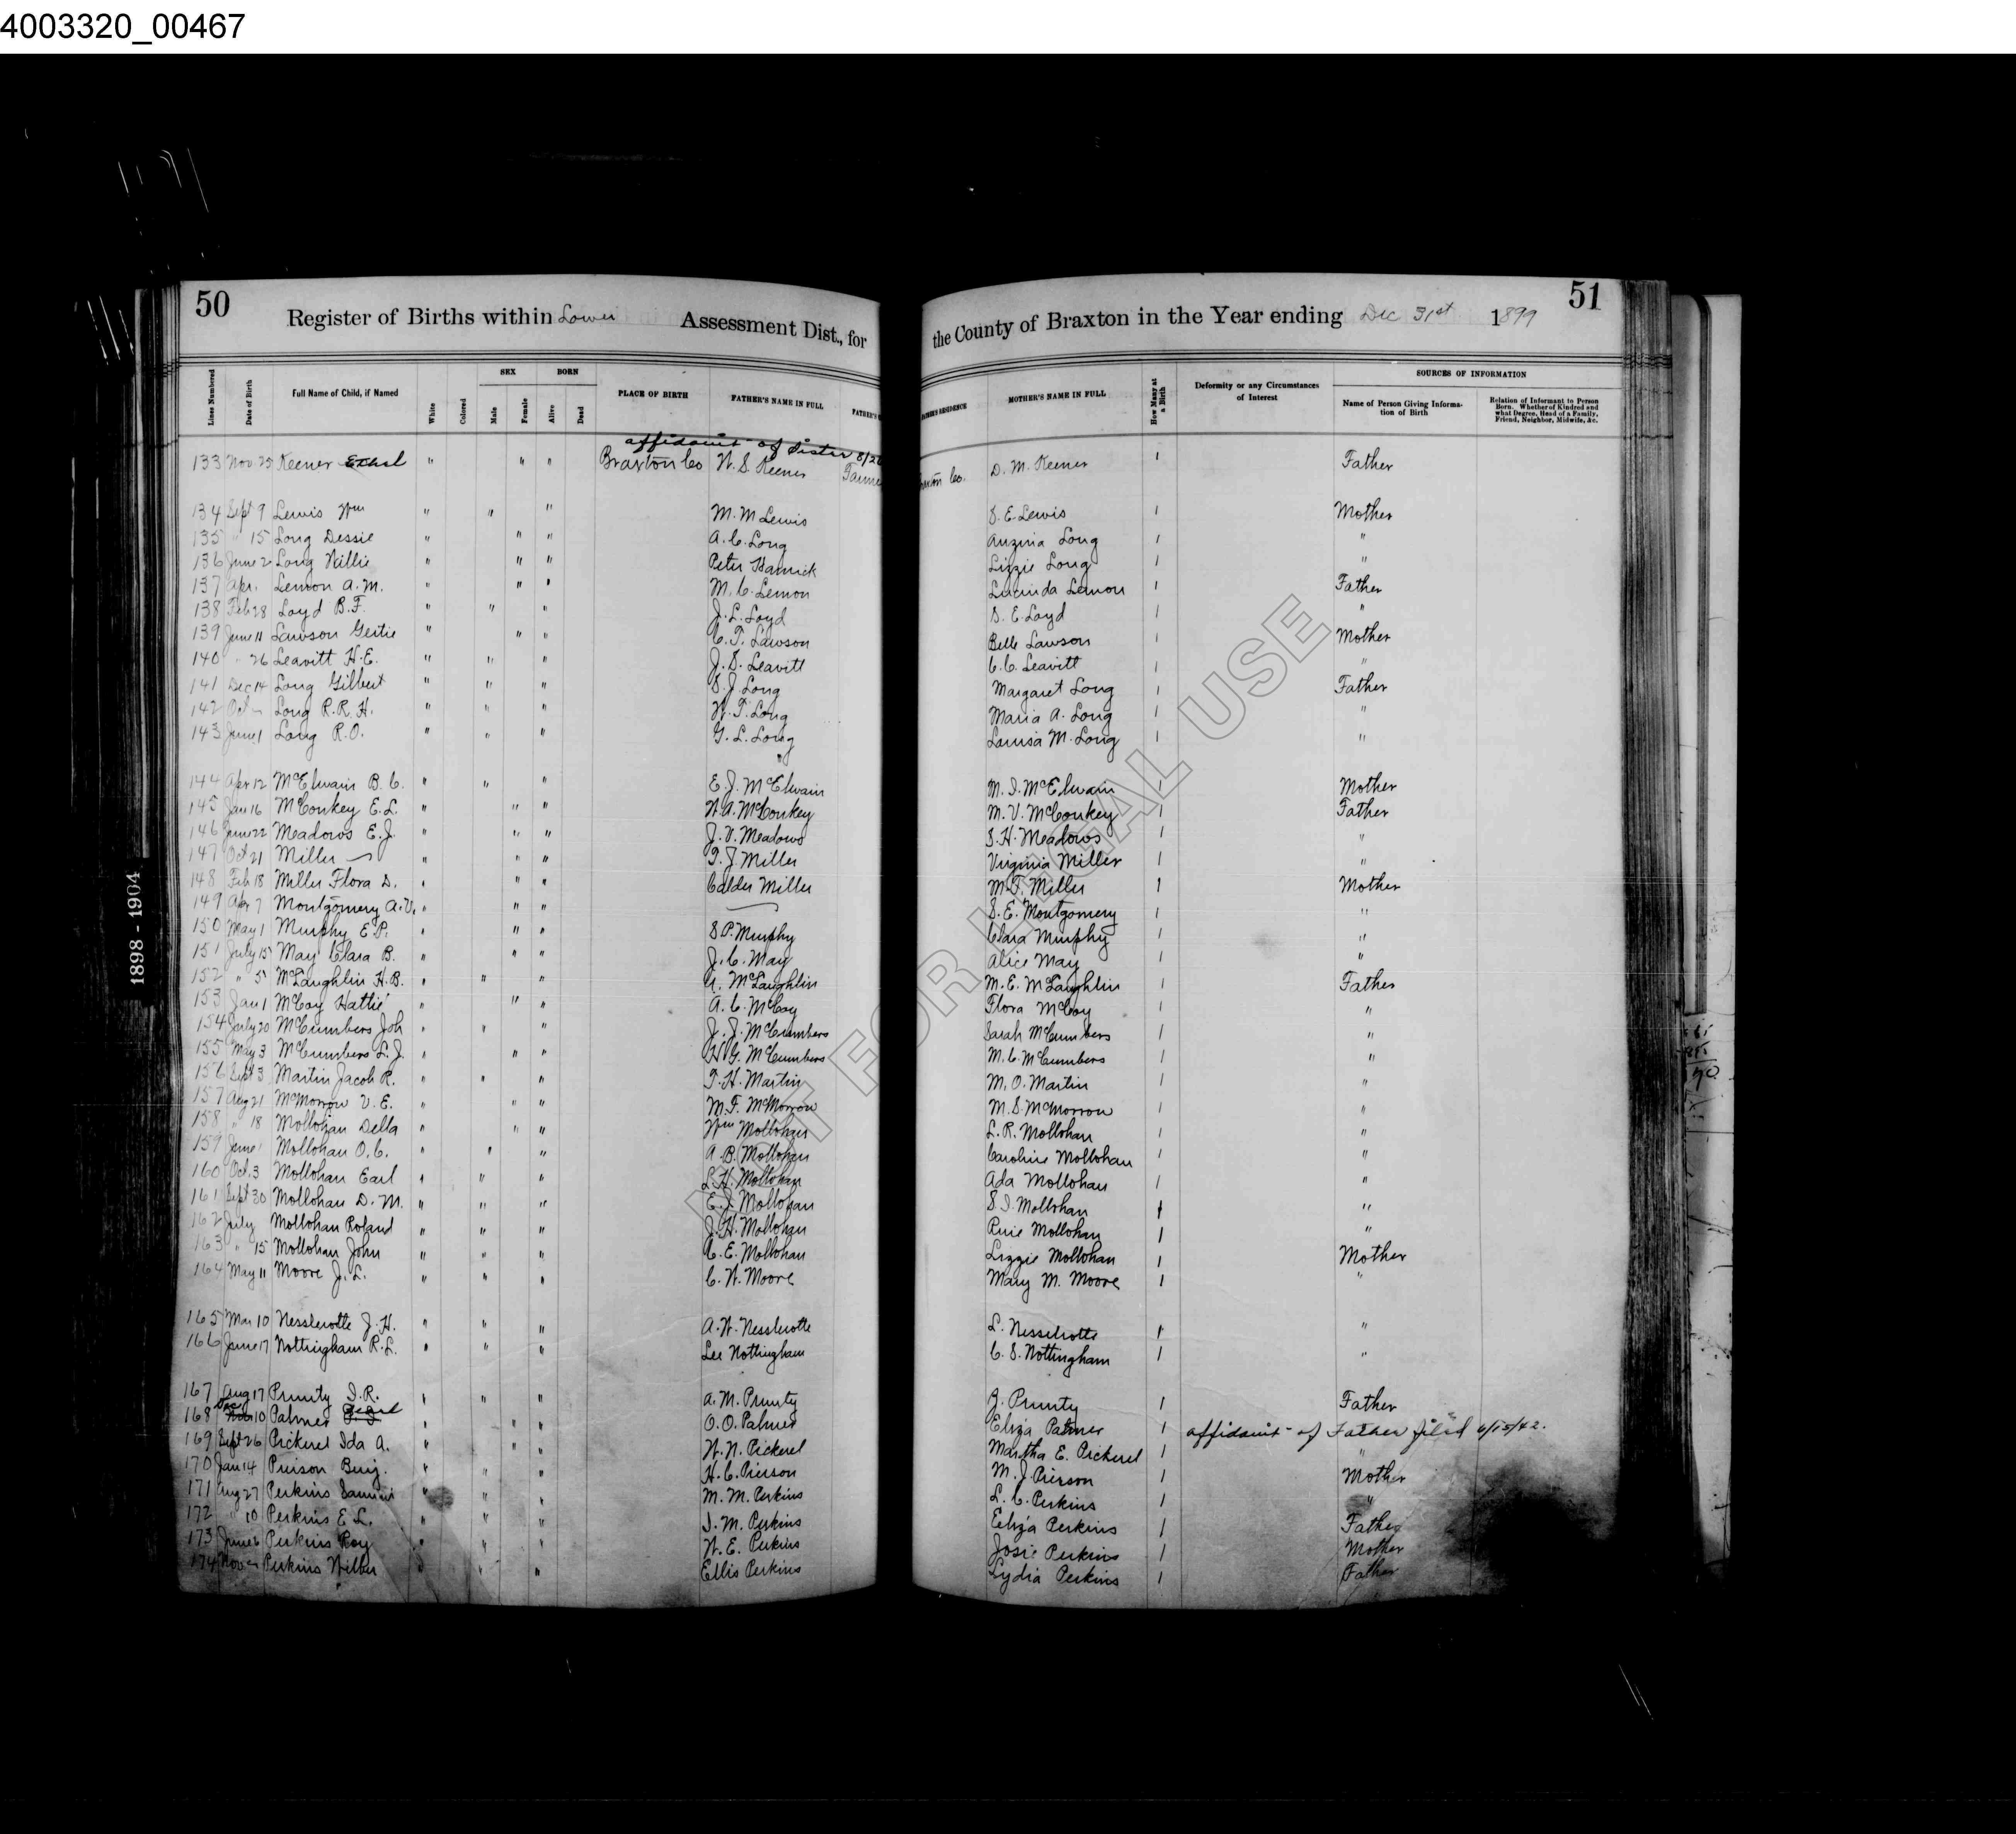 4003320_00467
50
Register of Births within Lower Assessment Dist., for
the County of Braxton in the Year ending Dec 31st 1899
51
Lines Numbered
Date of Birth
Full Name of Child, if Named
White
Colored
SEX
Male
Female
BORN
Alive
Dead
PLACE OF BIRTH
FATHER'S NAME IN FULL
FATHER'S RESIDENCE
MOTHER'S NAME IN FULL
How Many at a Birth
Deformity or any Circumstances of Interest
SOURCES OF INFORMATION
Name of Person Giving Information of Birth
Relation of Informant to Person Born. Whether of Kindred and what Degree, Head of a Family, Friend, Neighbor, Midwife, &c.
affidavit of Sister 8/2
133 Nov 25 Keener " " " Braxton Co W. S. Keener Farmer Braxton Co. D. M. Keener 1 Father
134 Sept 9 Lewis Wm " " " M. M Lewis S. E. Lewis 1 Mother
135 " 15 Long Dessie " " " A. C. Long Auzina Long 1 "
136 June 2 Long Willie " " " Peter Hamrick Lizzie Long 1 "
137 Apr. Lemon A. M. " " " M. C. Lemon Lucinda Lemon 1 Father
138 Feb 28 Loyd B. F. " " " J. L. Loyd S. E. Loyd 1 "
139 June 11 Lawson Gertie " " " C. T. Lawson Belle Lawson 1 Mother
140 " 26 Leavitt H. E. " " " J. S. Leavitt C. C. Leavitt 1 "
141 Dec 14 Long Gilbert " " " S. J. Long Margaret Long 1 Father
142 Oct Long R. R. H. " " " W. T. Long Maria A. Long 1 "
143 June 1 Long R. O. " " " G. L. Long Louisa M. Long 1 "
144 Apr 12 McElwain B. C. " " " E. J. McElwain M. I. McElwain 1 Mother
145 Jan 16 McConkey E. L. " " " W. A. McConkey M. V. McConkey 1 Father
146 June 22 Meadows E. J. " " " J. V. Meadows S. H. Meadows 1 "
147 Oct 21 Miller " " " T. J Miller Virginia Miller 1 "
148 Feb 18 Miller Flora D. " " " Calder Miller M. F. Miller 1 Mother
149 Apr 7 Montgomery A. V. " " " S. E. Montgomery 1 "
150 May 1 Murphy E. P. " " " S P. Murphy Clara Murphy 1 "
151 July 15 May Clara B. " " " J. C. May Alice May 1 "
152 " 5 McLaughlin H. B. " " " McLaughlin M. E. McLaughlin 1 Father
153 Jan 1 McCoy Hattie " " " A. C. McCoy Flora McCoy 1 "
154 July 20 McCumbers Joh " " " J. J. McCumbers Sarah McCumbers 1 "
155 May 3 McCumbers L. J. " " " H G. McCumbers M. C. McCumbers 1 "
156 Sept 3 Martin Jacob R. " " " T. H. Martin M. O. Martin 1 "
157 Aug 21 McMorrow V. E. " " " M. F. McMorrow M. S. McMorrow 1 "
158 " 18 Mollohan Della " " " Wm Mollohan L. R. Mollohan 1 "
159 June 1 Mollohan O. C. " " " A. B. Mollohan Caroline Mollohan 1 "
160 Oct. 3 Mollohan Earl " " " L. H. Mollohan Ada Mollohan 1 "
161 Sept 30 Mollohan D. M. " " " E. J. Mollohan S. I. Mollohan 1 "
162 July Mollohan Roland " " " J. H. Mollohan Mollohan 1 "
163 " 15 Mollohan John " " " C. E. Mollohan Lizzie Mollohan 1 Mother
164 May 11 Moore J. L. " " " C. W. Moore Mary M. Moore 1 "
165 Mar 10 Nesselrotte J. H. " " " A. W. Nesselrotte L. Nesselrotte 1 "
166 June 17 Nottingham R. L. " " " Lee Nottingham C. S. Nottingham 1 "
167 Aug 17 Prunty I. R. " " " A. M. Prunty J. Prunty 1 Father
168 Dec 10 Palmer Pearl " " " O. O. Palmer Eliza Palmer 1 affidavit of Father filed 6/15/42.
169 Sept 26 Pickerel Ida A. " " " W. N. Pickerel Martha E. Pickerel 1 "
170 Jan 14 Pierson Benj. " " " H. C. Pierson M. J. Pierson 1 Mother
171 Aug 27 Perkins " " " M. M. Perkins L. C. Perkins 1 "
172 " 10 Perkins E L. " " " I. M. Perkins Eliza Perkins 1 Father
173 June 6 Perkins Roy " " " W. E. Perkins Josie Perkins 1 Mother
174 Nov Perkins Wilber " " " Ellis Perkins Lydia Perkins 1 Father
1898 - 1904
NOT FOR LEGAL USE